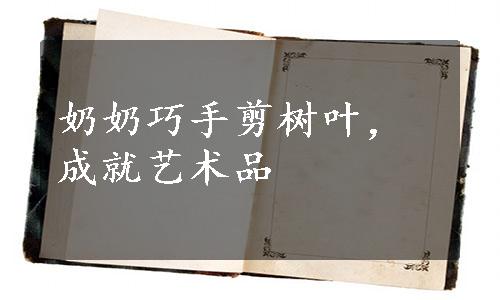 奶奶巧手剪树叶，
成就艺术品